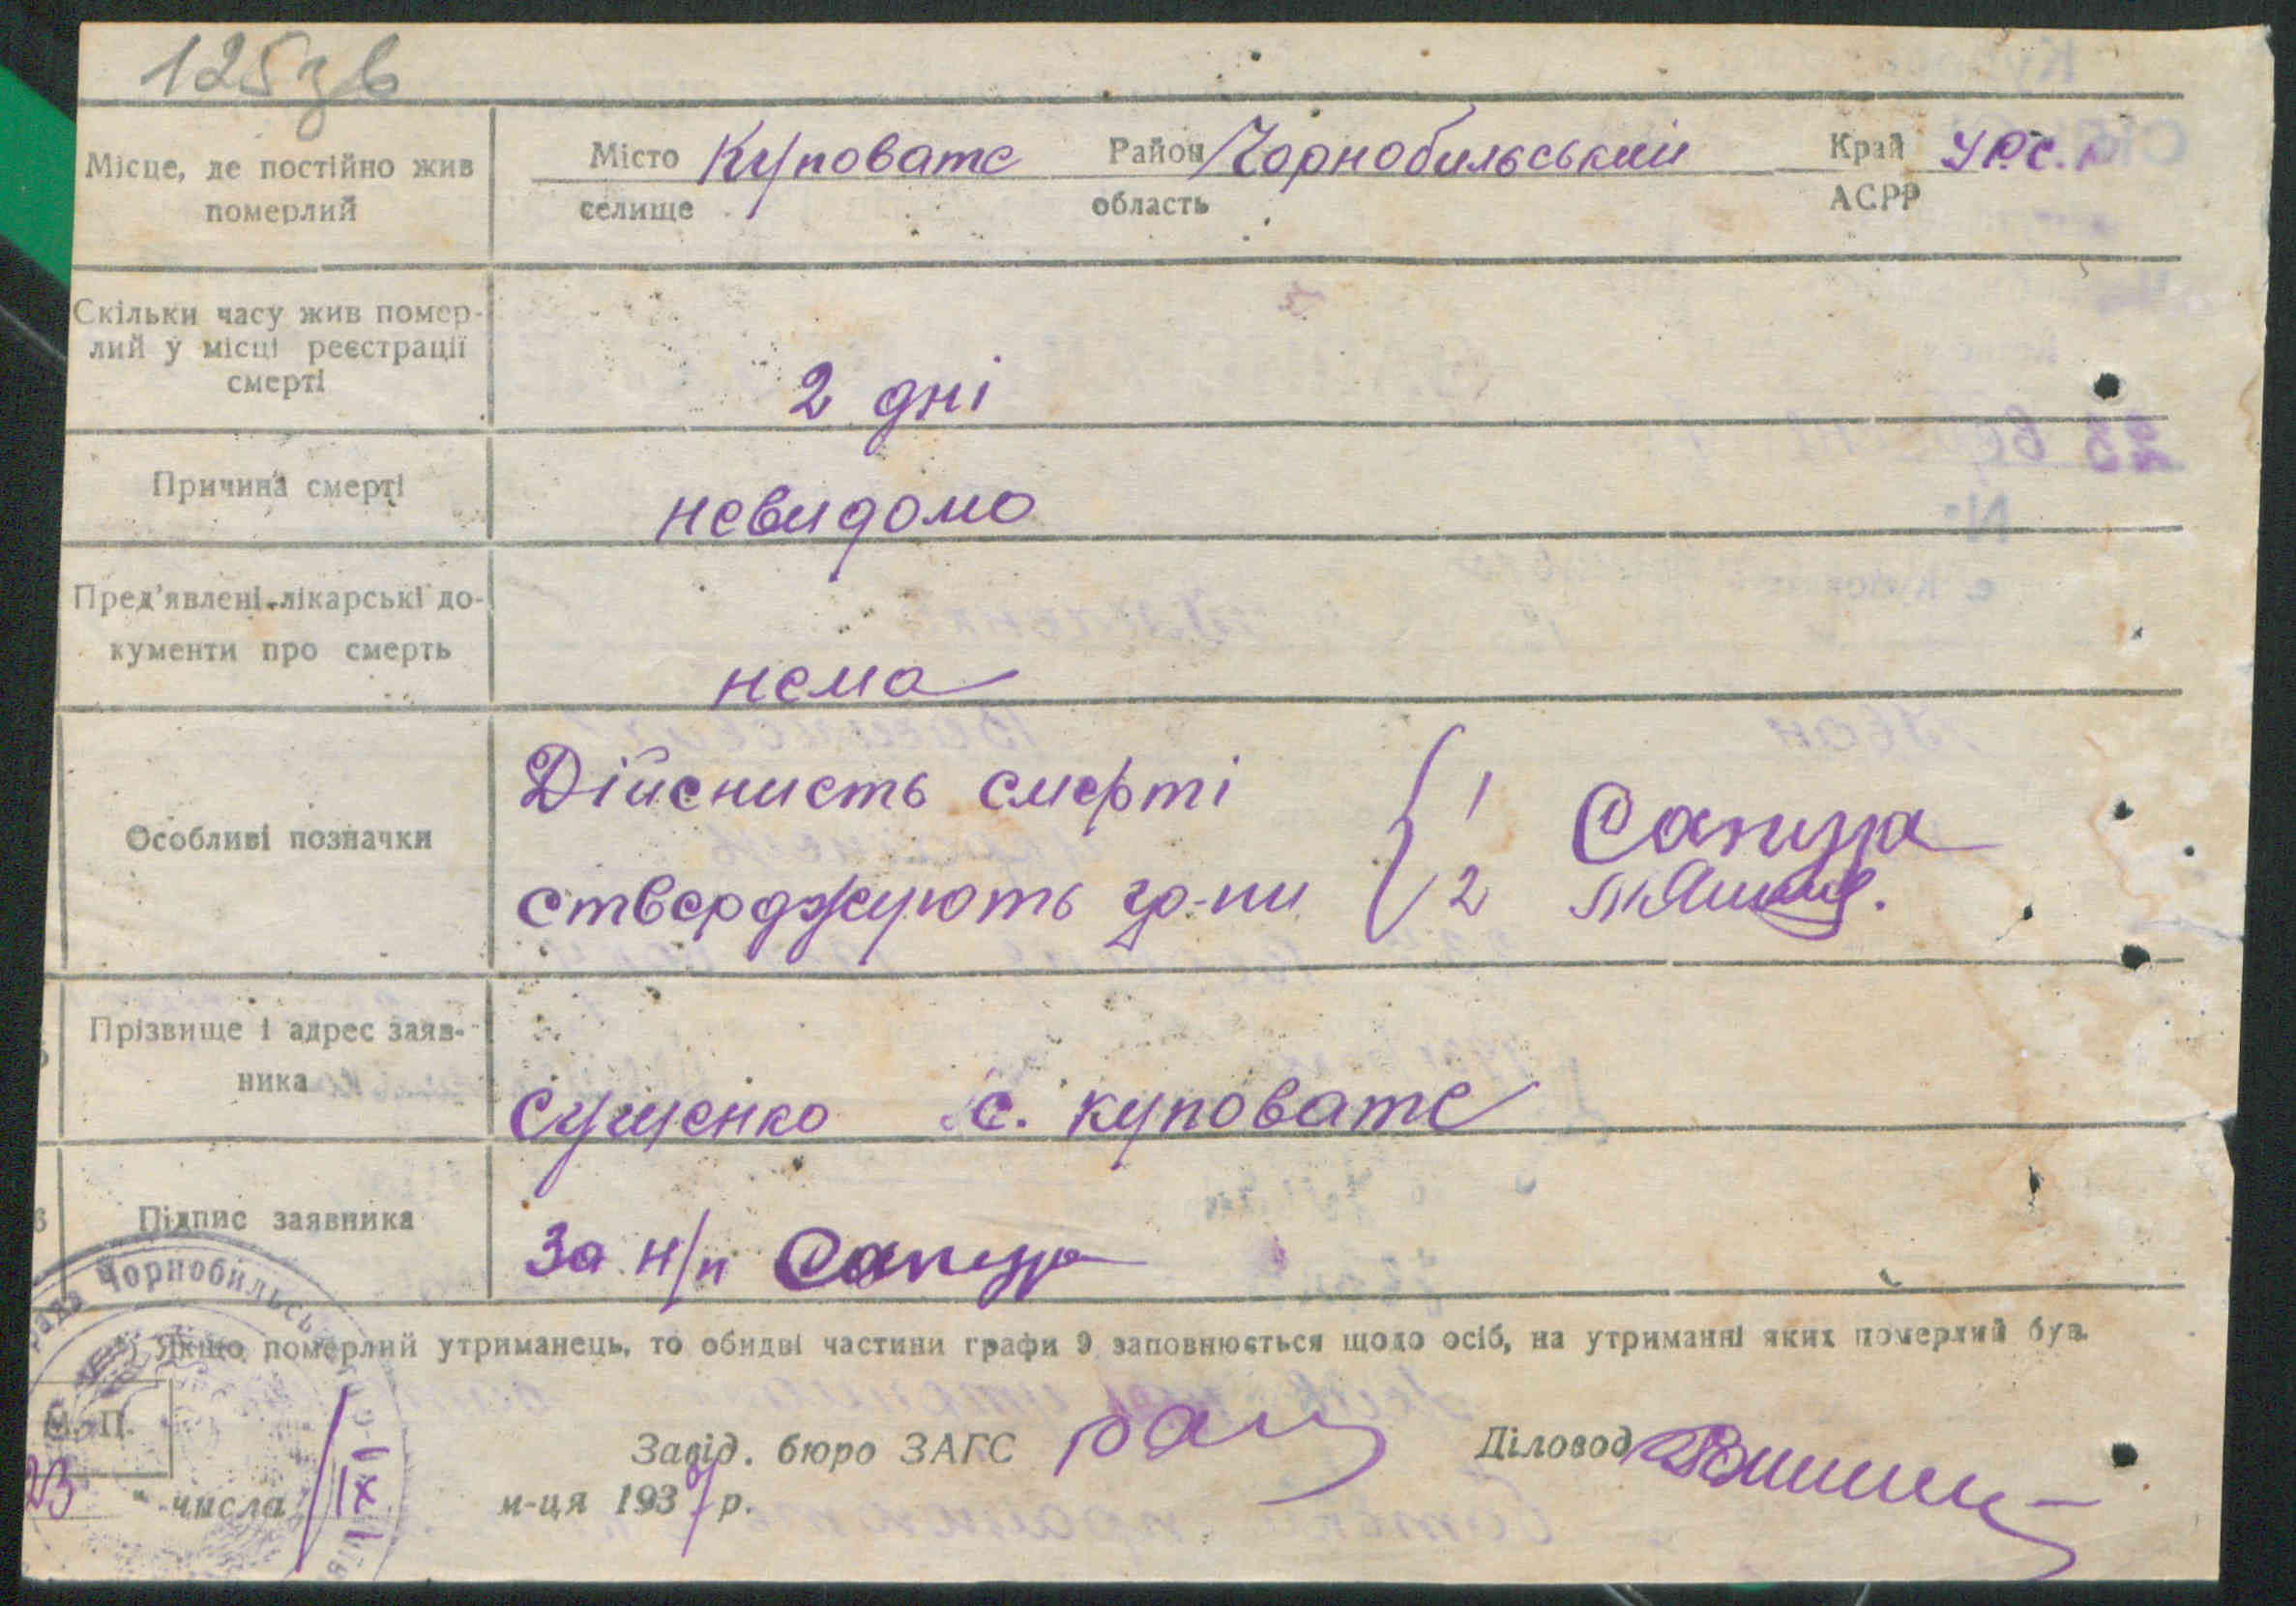 125 зв
Місце, де постійно жив
померлий
Місто Куповате Район Чорнобильський Край УРС.
селище область АСРР
Скільки часу жив помер-
лий у місці реєстрації
смерті
2 дні
Причина смерті
невидомо
Пред'явлені лікарські до-
кументи про смерть
нема
Особливі позначки
Дійснисть смерті
стверджують гр-ни
1 Сапура
2
Прізвище і адрес заяв-
ника
Сущенко с. Куповате
Підпис заявника
За н/п Сапура
Рада Чорнобильсь
*) Якщо померлий утриманець, то обидві частини графи 9 заповнюється щодо осіб, на утриманні яких померлий був.
М. П.
Завід. бюро ЗАГС
Діловод
23 " числа IX м-ця 1937 р.